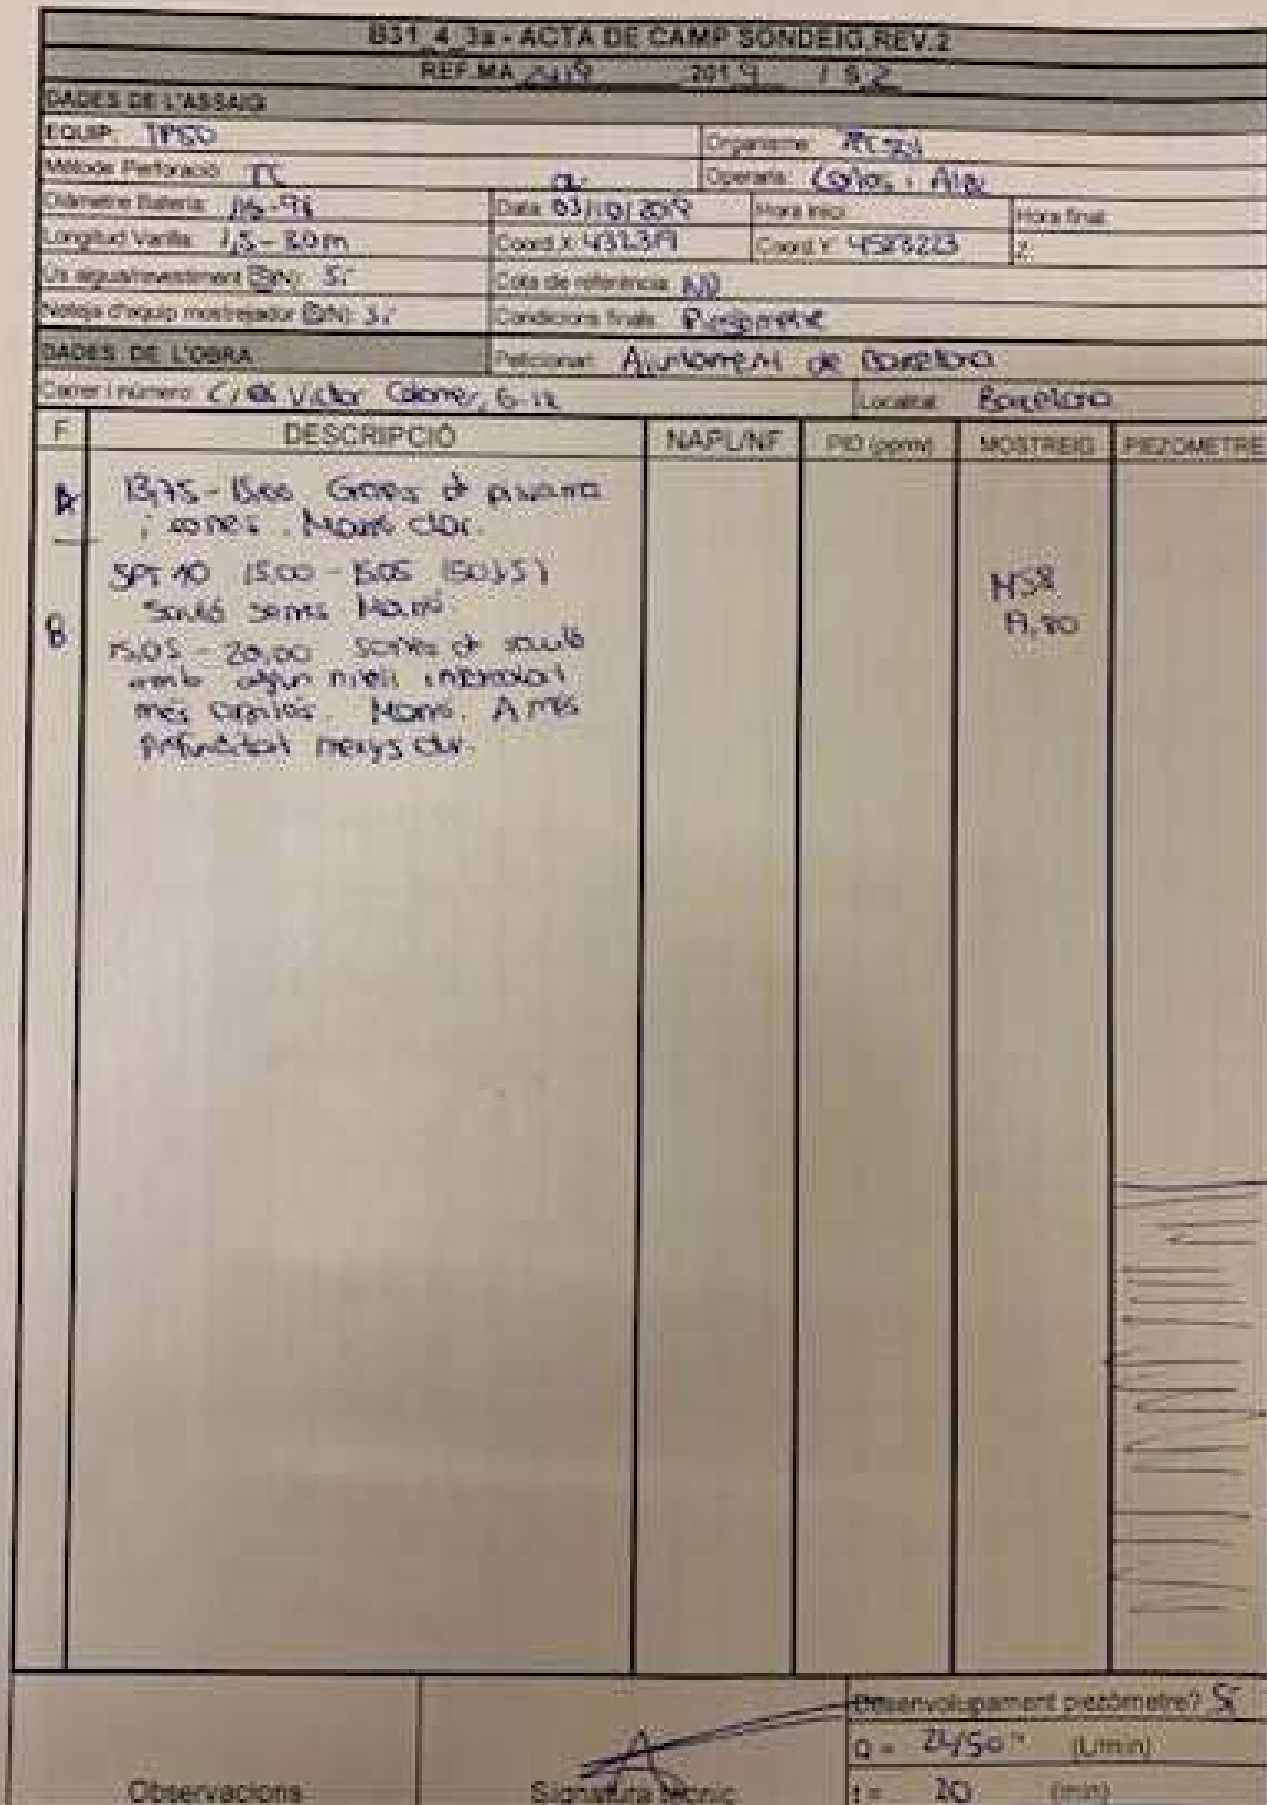 B31_4_3a - ACTA DE CAMP SONDEIG.REV.2
REF.MA 2019 / S 2
DADES DE L'ASSAIG
EQUIP: TP50 Organisme:
Mètode Perforació: Operaris: Carlos i Alex
Diàmetre Bateria: Data: 03/10/2019 Hora inici: Hora final:
Longitud Varilla: 1,5 - 3.0 m Coord.X: Coord.Y: 4583223 Z:
Ús aigua/revestiment (S/N): Si Cota de referència: ND
Neteja d'equip mostrejador (S/N): Si Condicions finals: Piezòmetre
DADES DE L'OBRA Peticionari: Ajuntament de Barcelona
Carrer i número: C/ Víctor Colomer, 6-12 Localitat: Barcelona
F DESCRIPCIÓ NAPL/NF PID (ppmv) MOSTREIG PIEZÒMETRE
A 13,75 - 15,00 Graves de pissarra
i sorres. Marró clar.
SPT 10 15,00 - 15,05 (50/5)
Sauló sorres Marró.
B 15,05 - 20,00 sorres de sauló
amb algun nivell intercalat
més argilós. Marró. A més
profunditat menys clar.
Desenvolupament piezòmetre? Si
Q = (L/min)
Observacions Signatura tècnic t = 20 (min)